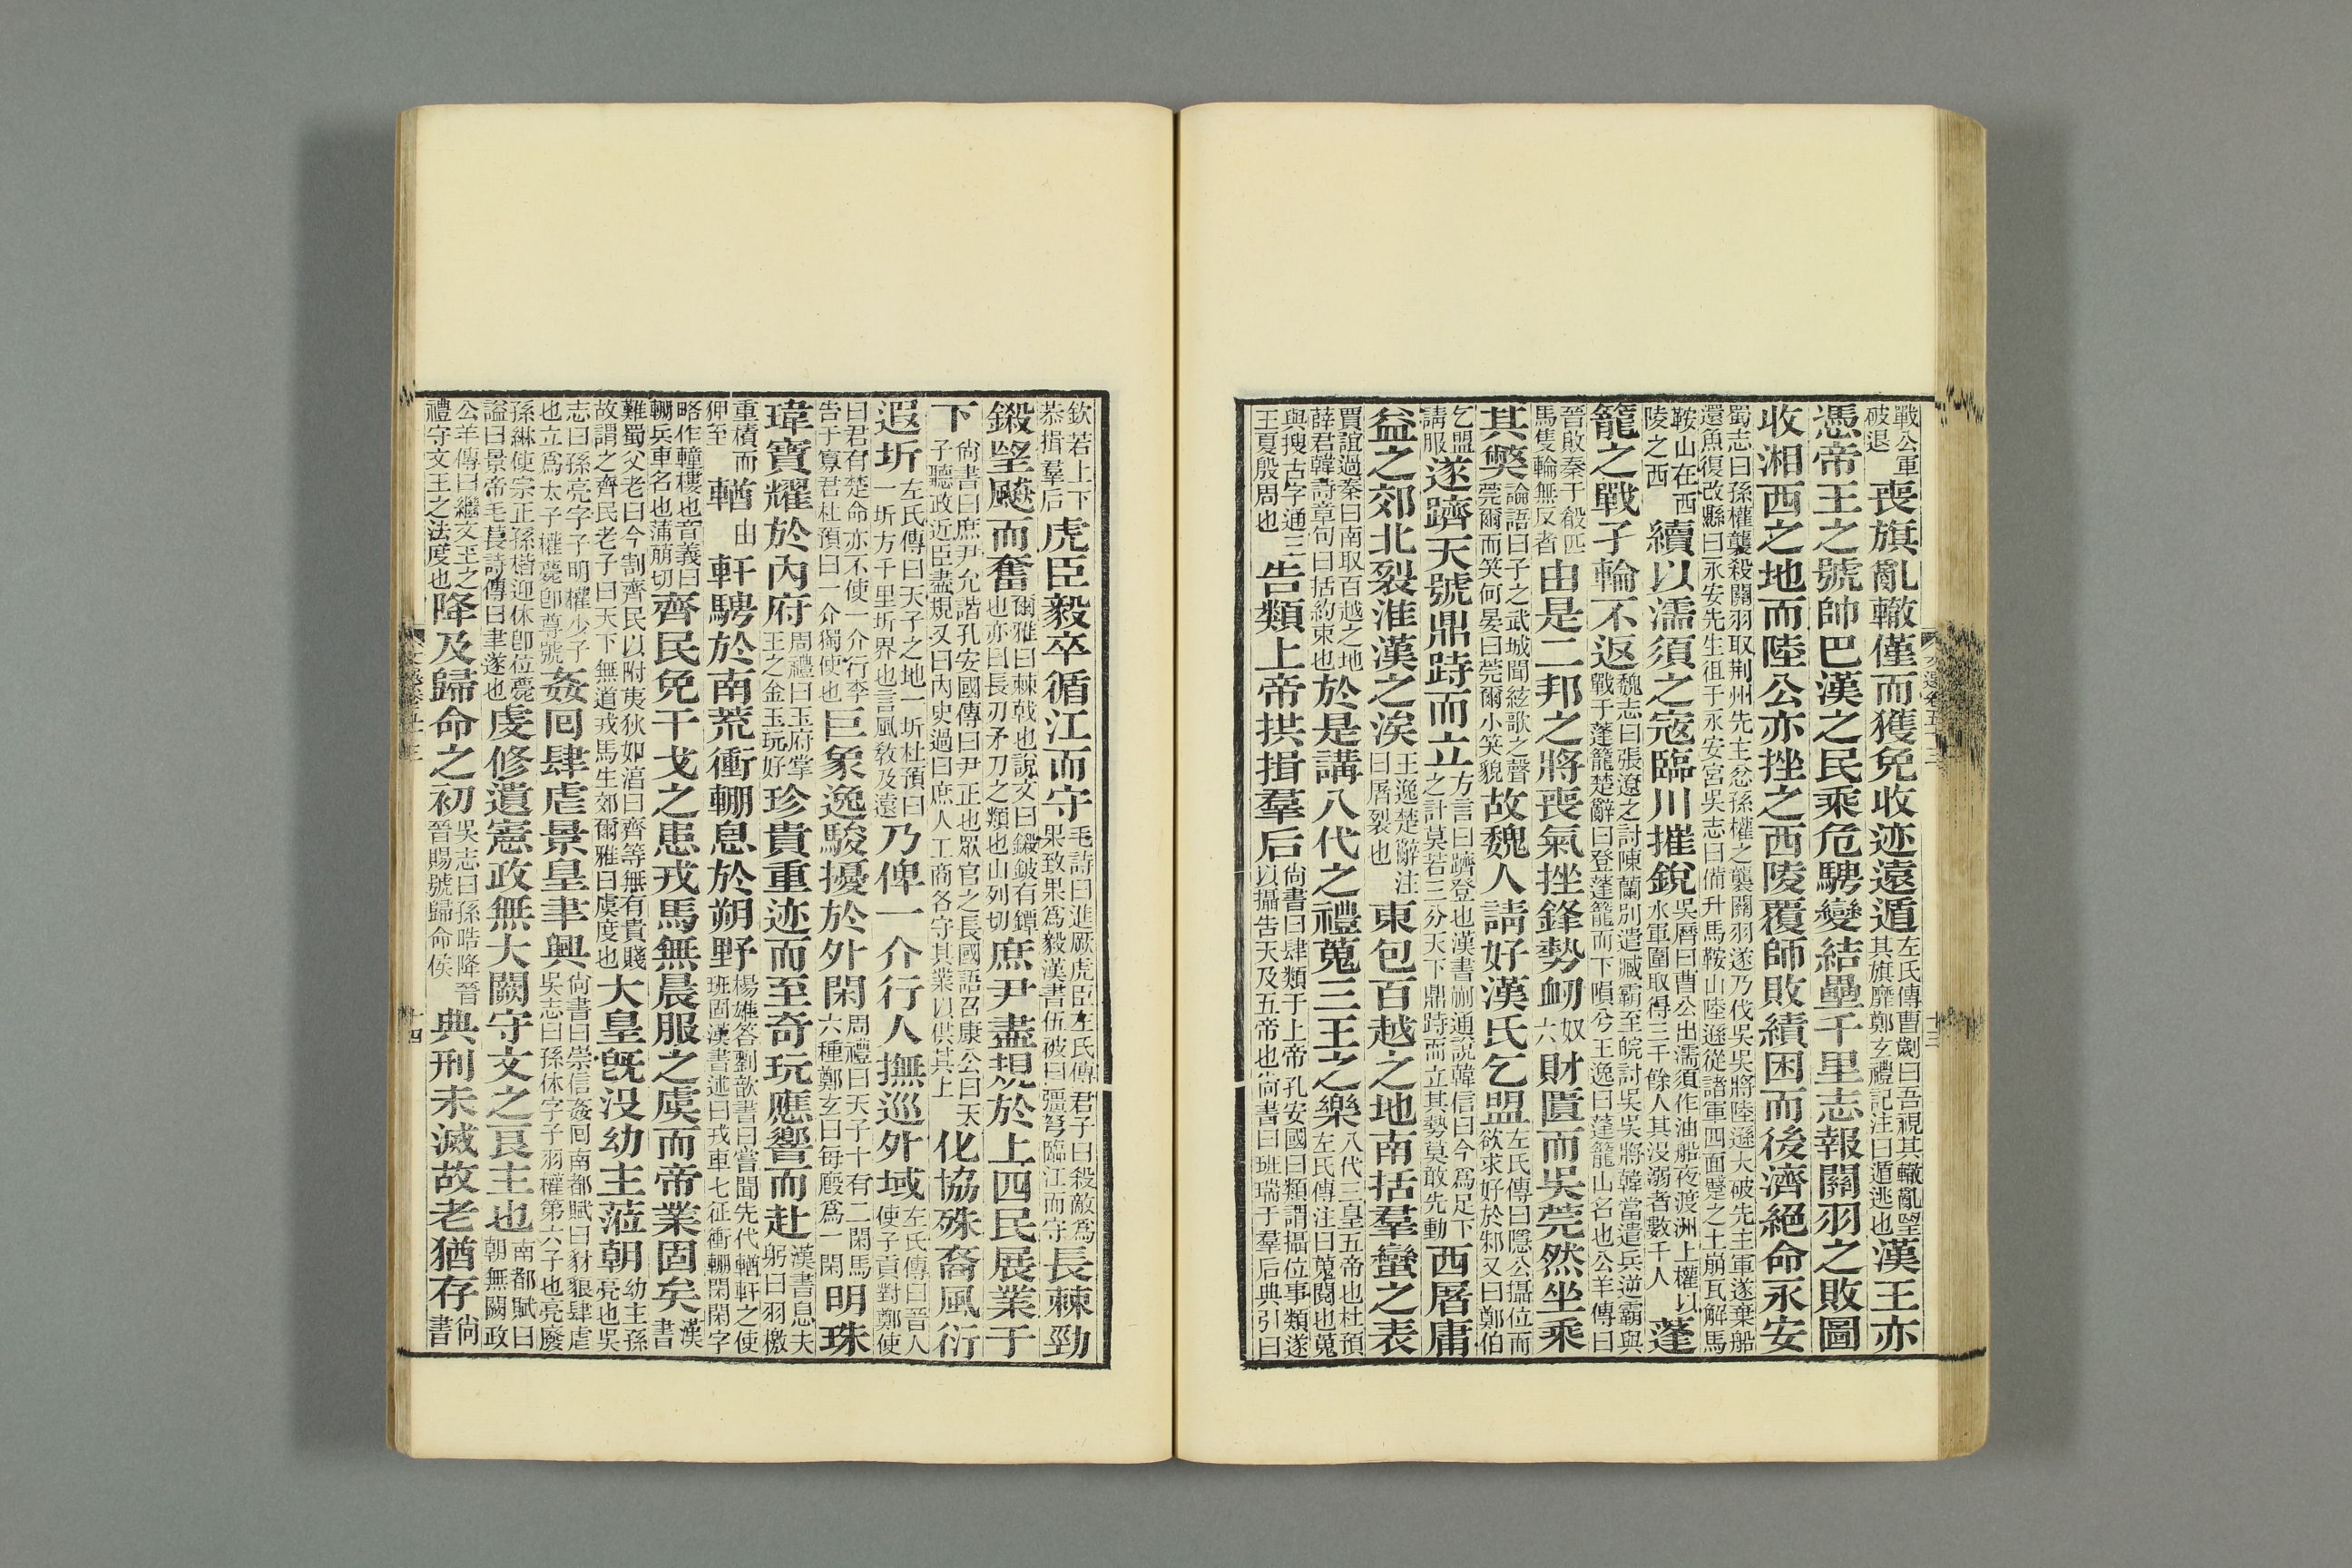 戰公軍破退喪旗亂轍僅而獲免收迹遠遁左氏傳曹劌曰吾視其轍亂望其旗靡鄭玄禮記注曰遁逃也漢王亦
憑帝王之號帥巴漢之民乘危騁變結壘千里志報關羽之敗圖
收湘西之地而陸公亦挫之西陵覆師敗績困而後濟絕命永安
蜀志曰孫權襲殺關羽取荆州先主忿孫權之襲關羽遂乃伐吳吳將陸遜大破先主軍遂棄船還魚復改縣曰永安先生徂于永安宮吳志曰備升馬鞍山陸遜從諸軍四面蹙之土崩瓦解馬
鞍山在西陵之西續以濡須之寇臨川摧銳吳曆曰曹公出濡須作油船夜渡洲上權以水軍圍取得三千餘人其没溺者數千人蓬
籠之戰孑輪不返魏志曰張遼之討陳蘭別遣臧霸至皖討吳吳將韓當遣兵逆霸與戰于蓬籠楚辭曰登蓬籠而下隕兮王逸曰蓬籠山名也公羊傳曰
晉敗秦于殽匹馬隻輪無反者由是二邦之將喪氣挫鋒勢衂奴六財匱而吳莞然坐乘
其獘論語曰子之武城聞絃歌之聲莞爾而笑何晏曰莞爾小笑貌故魏人請好漢氏乞盟左氏傳曰隱公攝位而欲求好於邾又曰鄭伯
乞盟請服遂躋天號鼎跱而立方言曰躋登也漢書蒯通說韓信曰今爲足下之計莫若三分天下鼎跱而立其勢莫敢先動西屠庸
益之郊北裂淮漢之涘王逸楚辭注曰屠裂也東包百越之地南括羣蠻之表
賈誼過秦曰南取百越之地薛君韓詩章句曰括約束也於是講八代之禮蒐三王之樂八代三皇五帝也杜預左氏傳注曰蒐閱也蒐
與搜古字通三王夏殷周也告類上帝拱揖羣后尚書曰肆類于上帝孔安國曰類謂攝位事類遂以攝告天及五帝也尚書曰班瑞于羣后典引曰
欽若上下恭揖羣后虎臣毅卒循江而守毛詩曰進厥虎臣左氏傳君子曰殺敵爲果致果爲毅漢書伍被曰彊弩臨江而守長棘勁
鎩望飈而奮爾雅曰棘戟也說文曰鎩鈹有鐔也亦曰長刃矛刀之類也山列切庶尹盡規於上四民展業于
下尚書曰庶尹允諧孔安國傳曰尹正也眾官之長國語召康公曰天子聽政近臣盡規又曰内史過曰庶人工商各守其業以供其上化協殊裔風衍
遐圻左氏傳曰天子之地一圻杜預曰一圻方千里圻界也言風敎及遠乃俾一介行人撫巡外域左氏傳曰晉人使子貢對鄭使
曰君有楚命亦不使一介行李告于寡君杜預曰一介獨使也巨象逸駿擾於外閑周禮曰天子十有二閑馬六種鄭玄曰每廄爲一閑明珠
瑋寶耀於内府周禮曰玉府掌王之金玉玩好珍貴重迹而至奇玩應響而赴漢書息夫躬曰羽檄
重積而狎至輶由軒騁於南荒衝輣息於朔野楊雄答劉歆書曰嘗聞先代輶軒之使班固漢書述曰戎車七征衝輣閑閑字
略作轒樓也音義曰輣兵車名也蒲萠切齊民免干戈之患戎馬無晨服之虞而帝業固矣漢書
難蜀父老曰今割齊民以附夷狄如淳曰齊等無有貴賤故謂之齊民老子曰天下無道戎馬生郊爾雅曰虞度也大皇旣没幼主蒞朝幼主孫亮也吳
志曰孫亮字子明權少子也立爲太子權薨卽尊號姦囘肆虐景皇聿興尚書曰崇信姦囘南都賦曰豺狼肆虐吳志曰孫休字子烈權第六子也亮廢
孫綝使宗正孫楷迎休卽位薨謚曰景帝毛萇詩傳曰聿遂也虔修遺憲政無大闕守文之良主也南都賦曰朝無闕政
公羊傳曰繼文王之禮守文王之法度也降及歸命之初吳志曰孫晧降晉晉賜號歸命侯典刑未滅故老猶存尚書